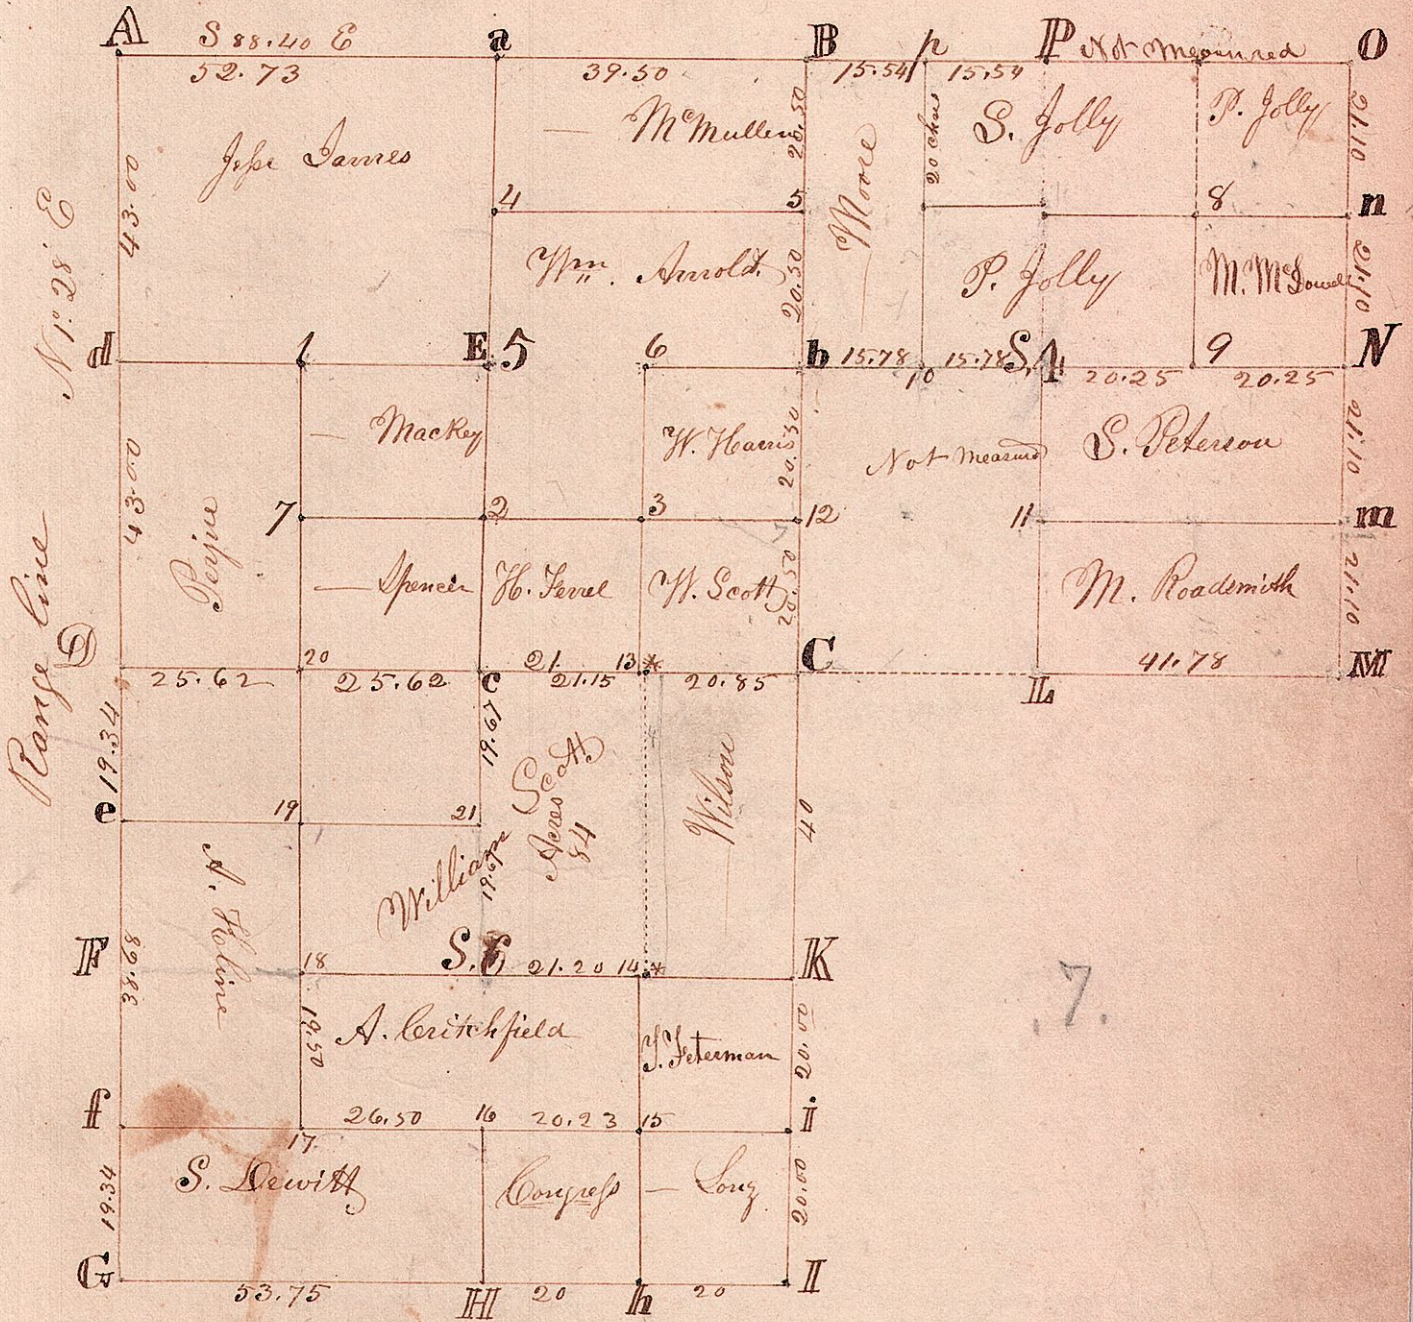 A S 88.40 E a B p P Not Measured O
52.73 39.50 15.54 15.54
Jesse James
43.00
— McMullen 20.50
Moore
20 chns
S. Jolly
P. Jolly
21.10
4 5 8 n
Wm. Arnold
20.50
P. Jolly
M. McDowell
21.10
N 1° 28' E
d 1 E 5 6 b 15.78 10 15.78 S, 4 20.25 9 20.25 N
— Mackey
W. Harris
20.50
Not Measured
S. Peterson
21.10
43.00
7 2 3 12 11 m
— Spencer
H. Ferrel
W. Scott
20.50
M. Roadsmith
21.10
Range line
D 20 21 13* C L 41.78 M
25.62 25.62 c 21.15 20.85
19.34
19.67
William Scott
Acres
84
— Wilson
40
e 19 21
19.67
A. Kline
F 18 S. 6 21.20 14* K
38.68
19.50
A. Critchfield
20.00
7.
f 26.50 16 20.23 15 I
17.
S. Dewitt
Congress
— Long
19.34
20.00
G 53.75 H 20 h 20 I